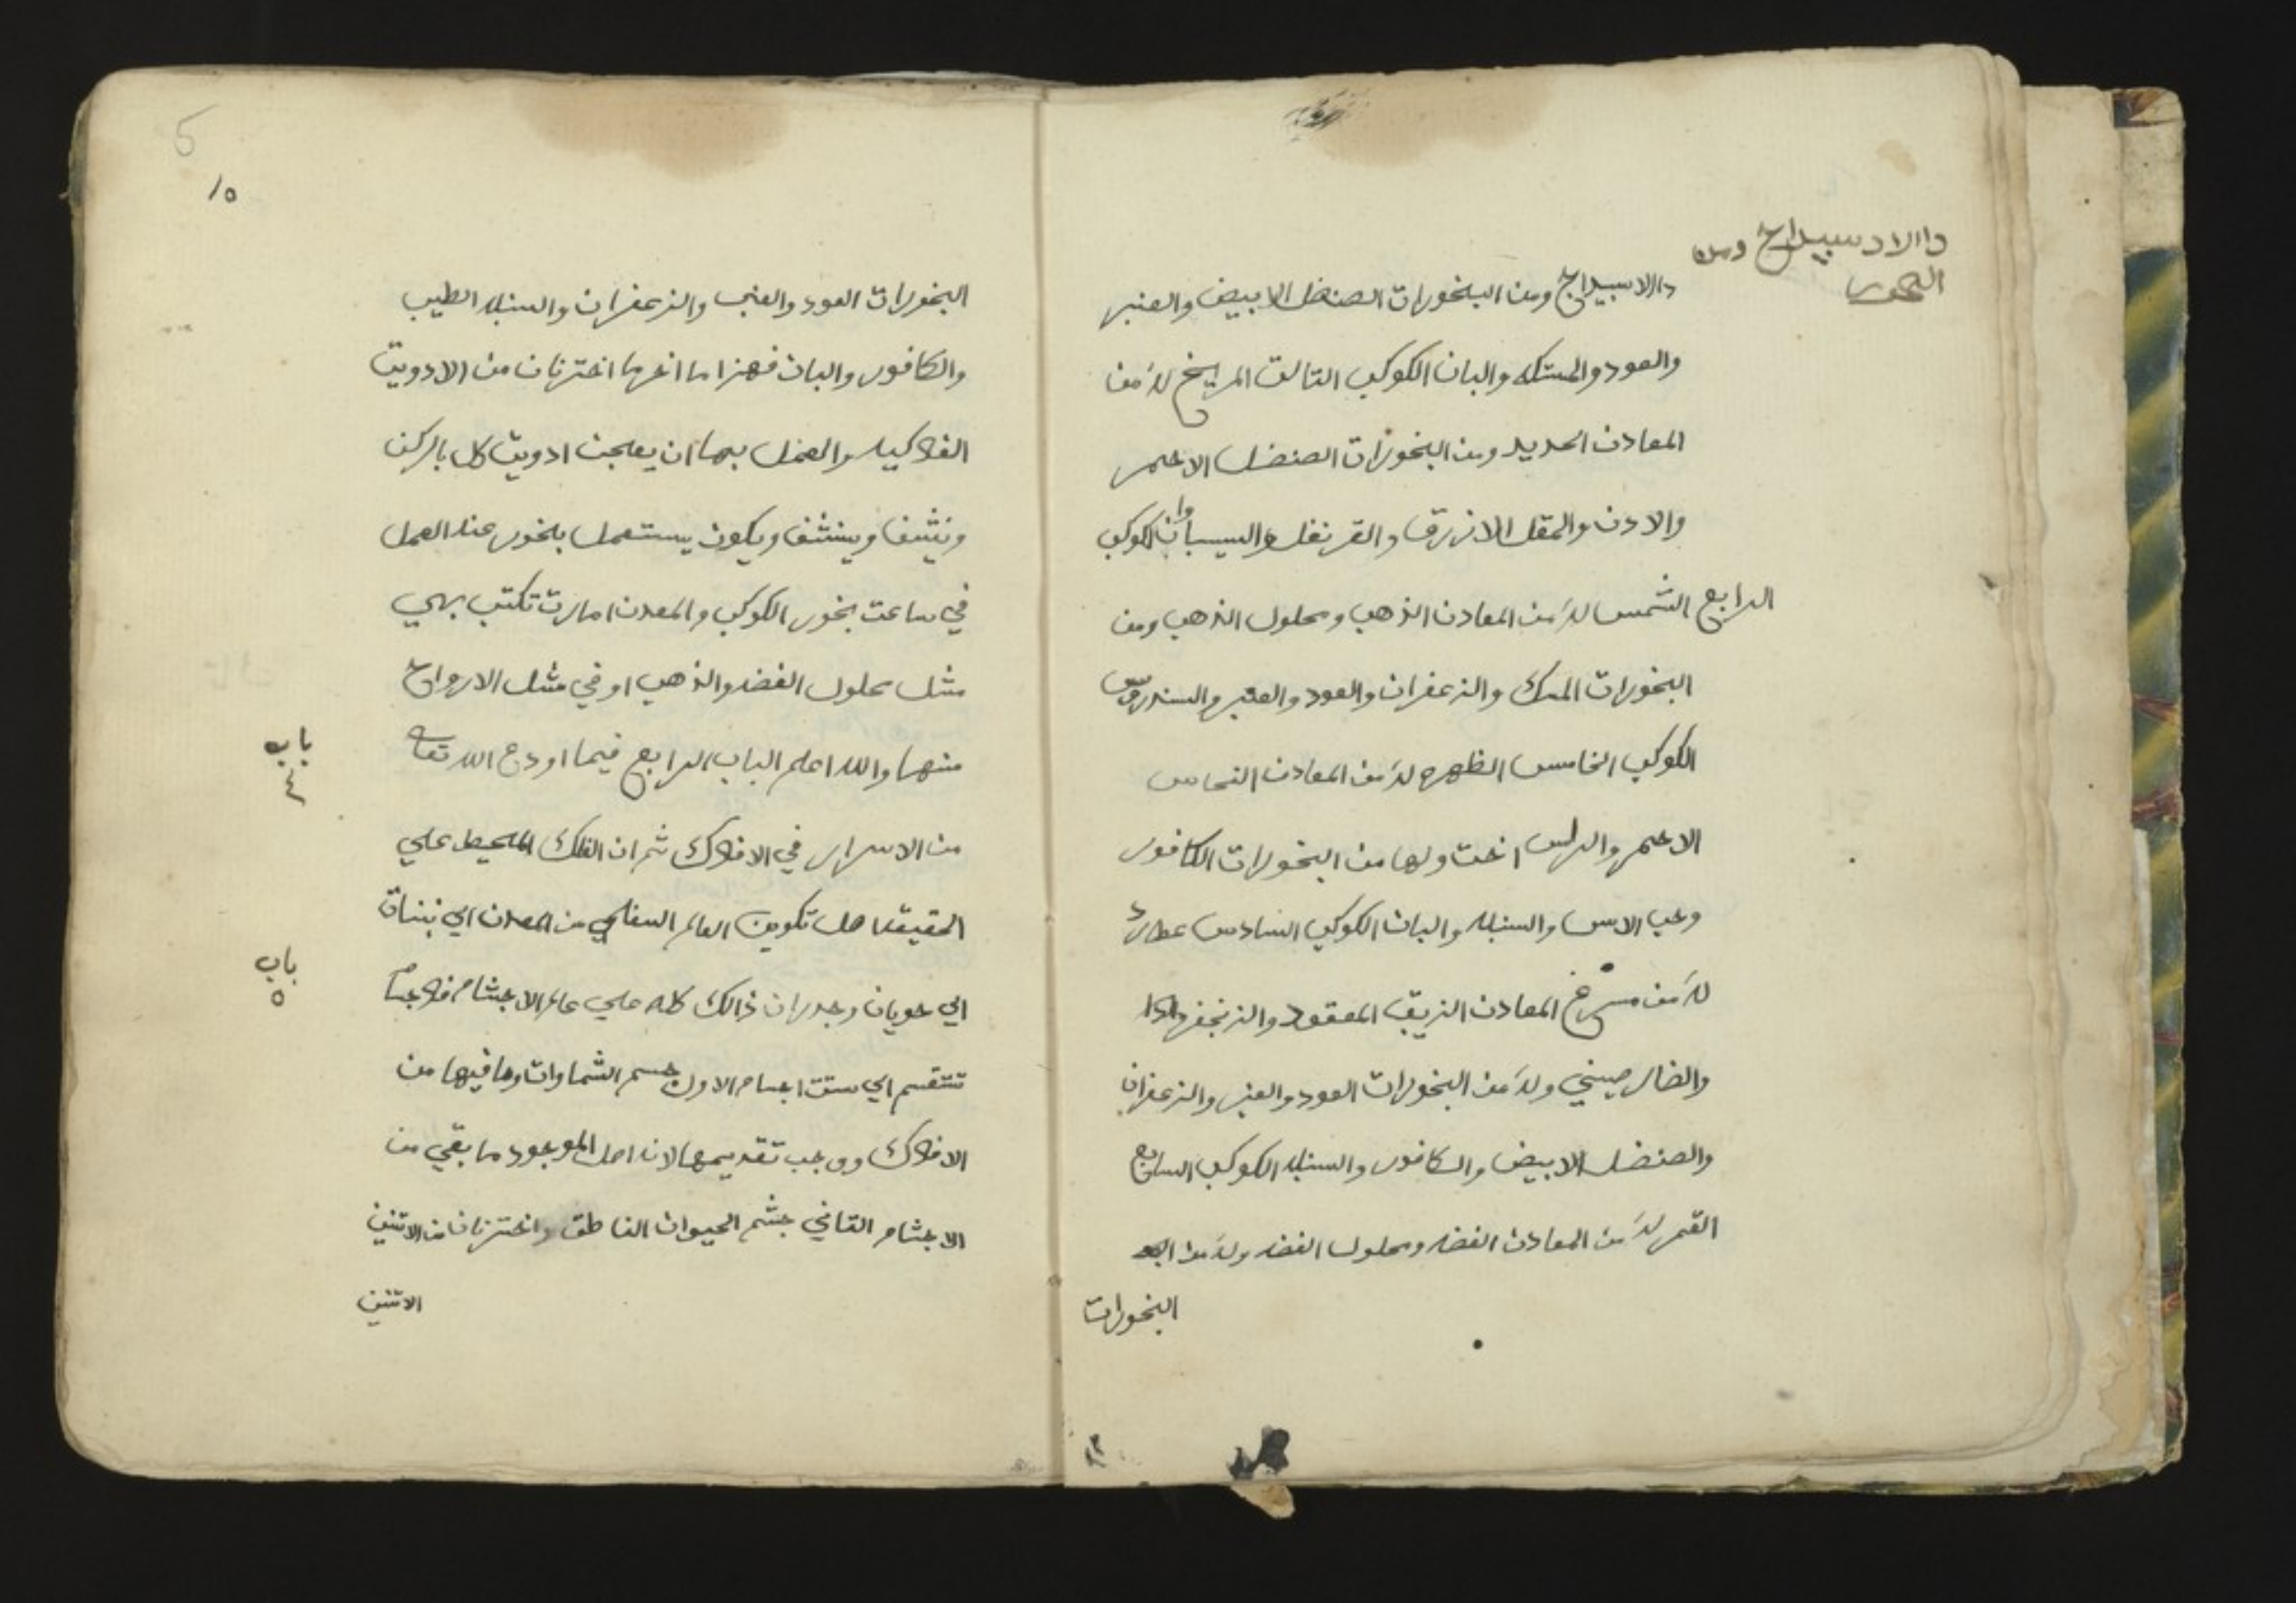 والاسبيداج ومن البخورات الصنضل الابيض والعنبر
والعود والمستكه والبان الكوكب التالت المريخ له من
المعادن الحديد ومن البخورات الصنضل الاحمر
والادن والمقل الازرق والقرنفل والسيسبان الكوكب
الرابع الشمس له من المعادن الذهب ومحلول الذهب ومن
البخورات المسك والزعفران والعود والعنبر والسندروس
الكوكب الخامس الظهره له من المعادن النحاس
الاحمر اخت ولها من البخورات الكافور
وحب الاس والسنبله والبان الكوكب السادس عطارد
له من المعادن الزيبق المعقود والزنجفر
صيني وله من البخورات العود والعنبر والزعفران
والصنضل الابيض والكافور والسنبله الكوكب السابع
القمر له من المعادن الفضه ومحلول الفضه وله من
البخورات
والاسبيداج ومن
البخور
5
١٥
البخورات العود والعنبر والزعفران والسنبله الطيب
والكافور والبان فهزا ما اخترنان من الادويت
الفلاكيه والعمل بها ان يعجن ادويت كل بالركن
وينشف ويكون يستعمل بخور عند العمل
في ساعت بخور الكوكب والمعدن تكتب بهي
مثل محلول الفضه والذهب او في مثل الارواح
منها والله اعلم الباب الرابع فيما اودع الله تعا
من الاسرار في الافلاك ثم ان الفلك المحيط علي
الحقيقت اصل تكوين العالم السفلي من المعدن الي نبنات
الي حويان وجد ان ذالك كله علي عالم الاجشام
تتقسم الي ستت اجسام الاول جسم الشماوات وما فيها من
الافلاك ووجب تقديمها لانه اصل الموجود ما بقي من
الاجشام التاني جشم الحيوان الناطق واخترنان من الاتنين
الاتنين
باب
٤
باب
٥